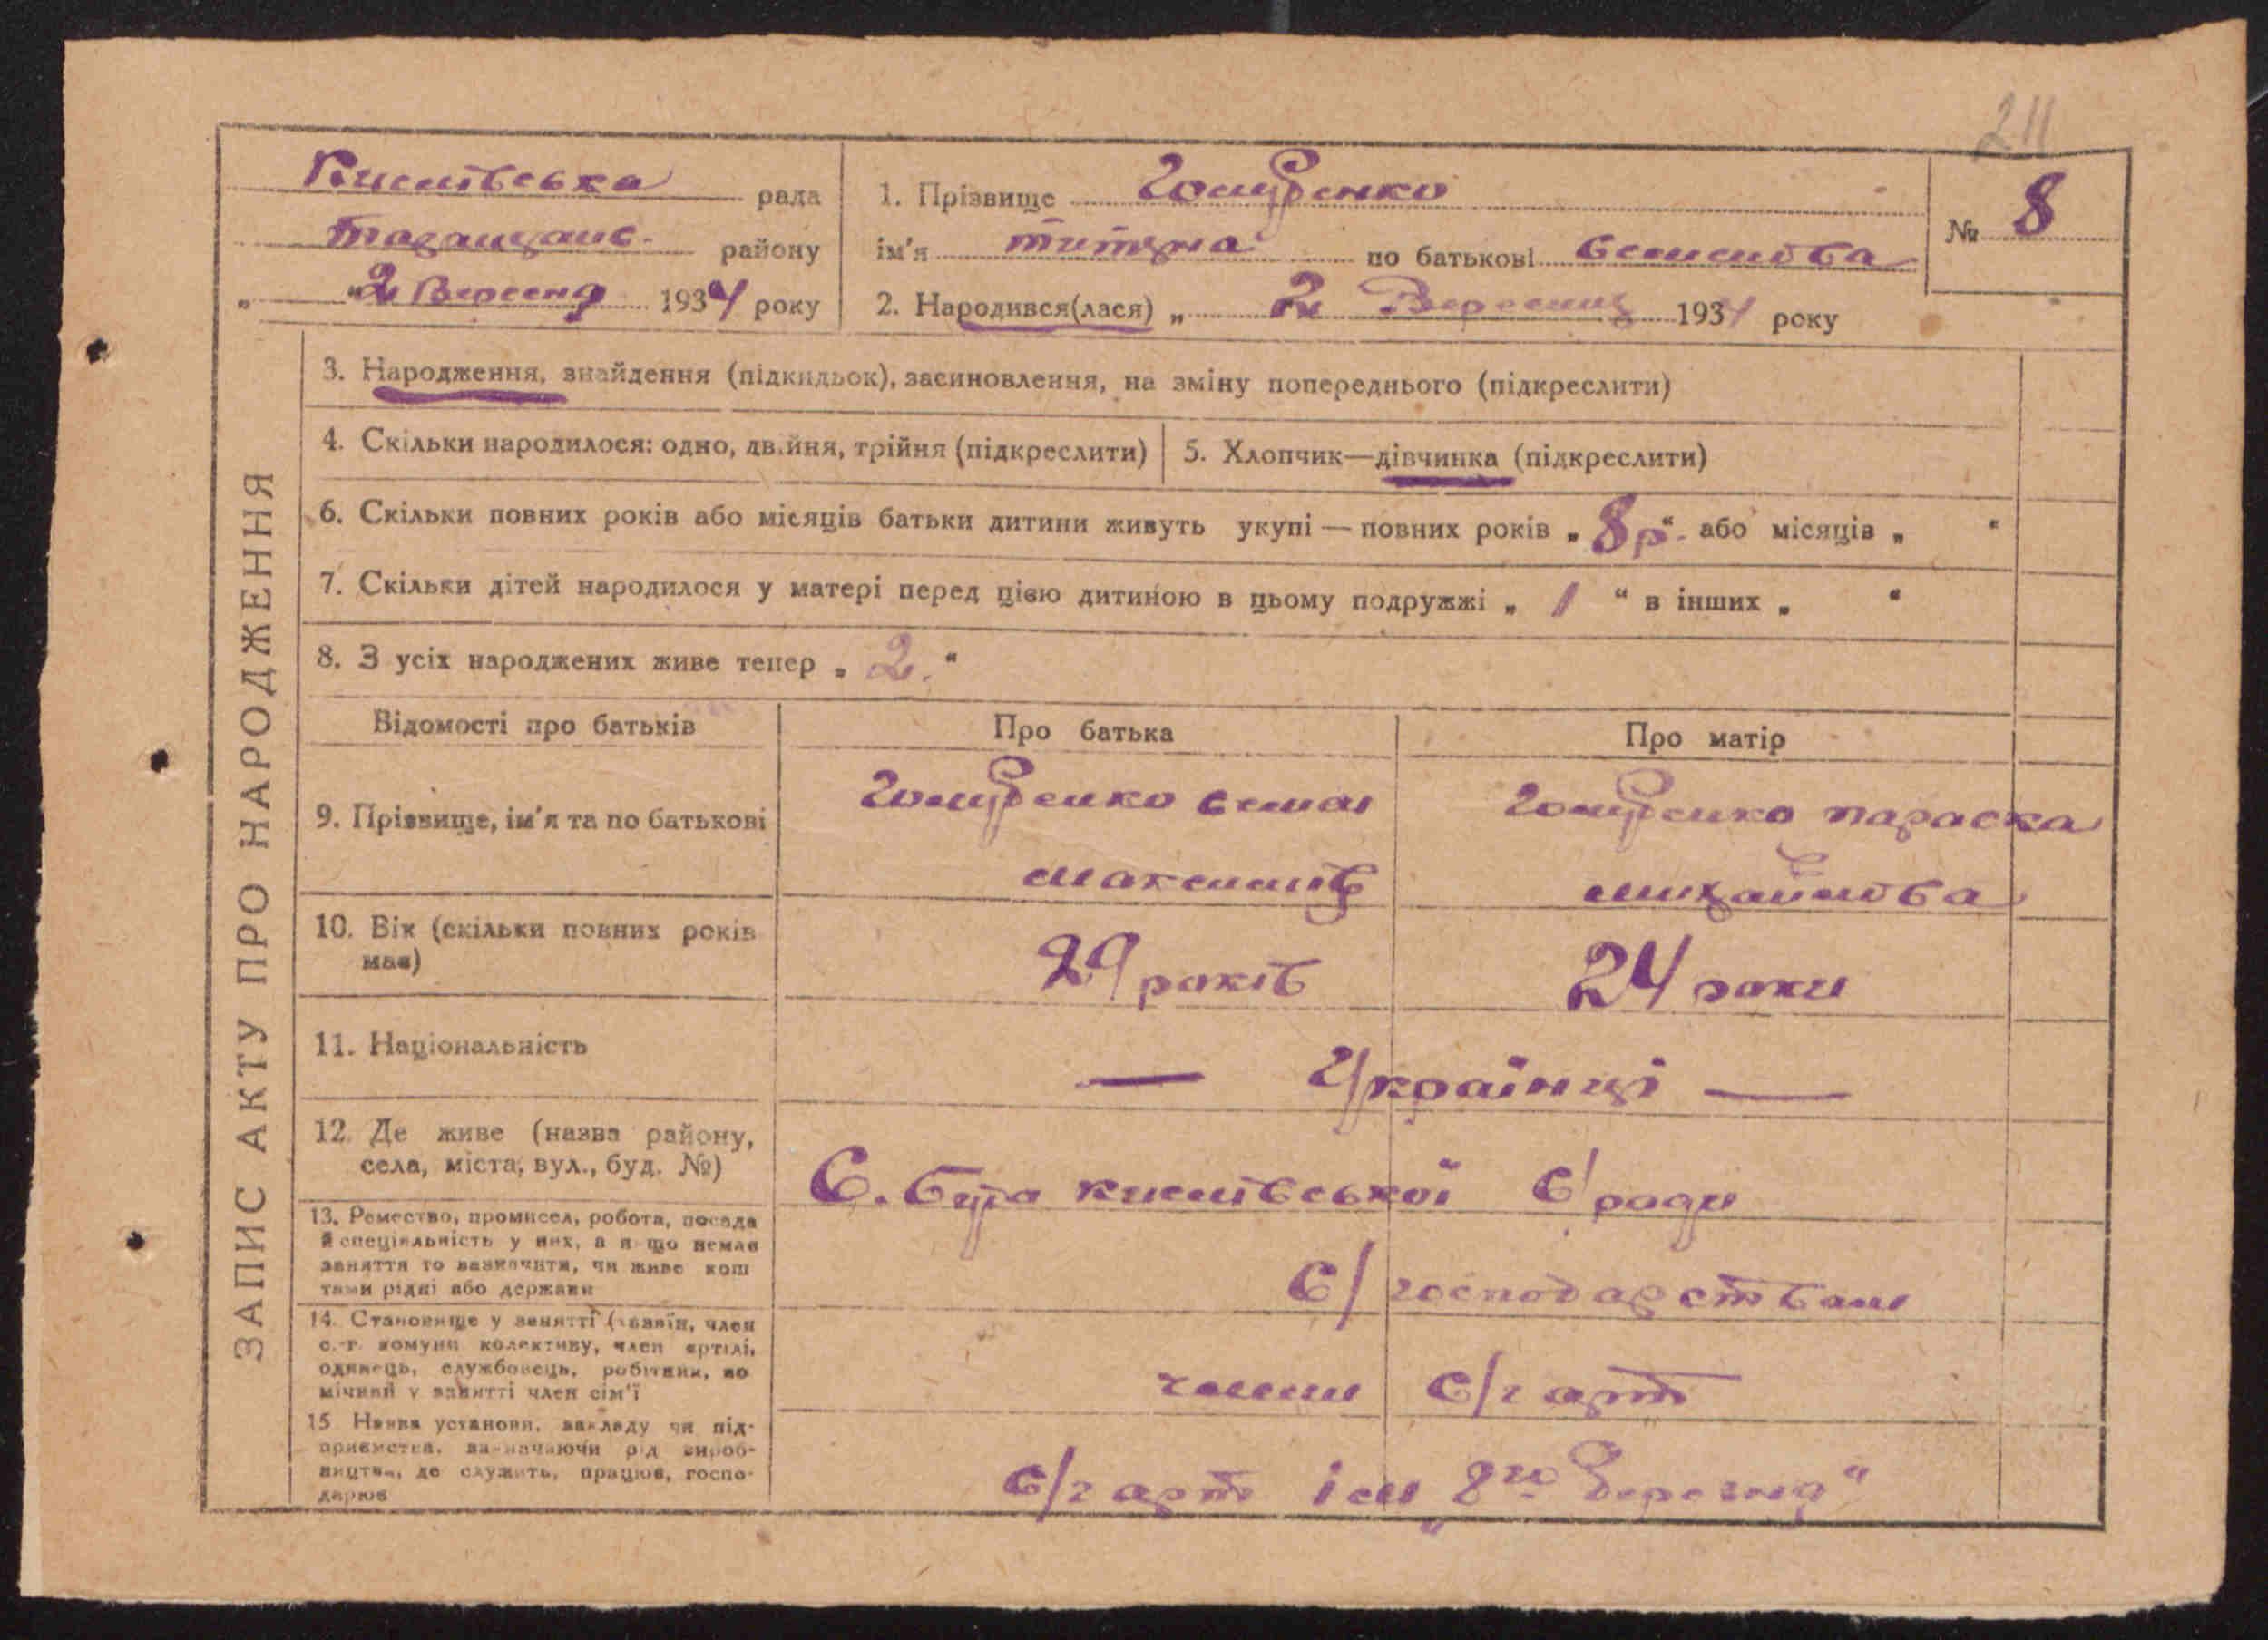 211
Кислівська рада
Таращанс. району
„ "2 Вересня 1934 року
1. Прізвище Голубенко
ім'я титяна по батькові семенова
2. Народився(лася) „ 2 Вересня 1934 року
№ 8
ЗАПИС АКТУ ПРО НАРОДЖЕННЯ
3. Народження, знайдення (підкидьок), засиновлення, на зміну попереднього (підкреслити)
4. Скільки народилося: одно, двійня, трійня (підкреслити)
5. Хлопчик—дівчинка (підкреслити)
6. Скільки повних років або місяців батьки дитини живуть укупі — повних років „ 8 р“. або місяців „ “
7. Скільки дітей народилося у матері перед цією дитиною в цьому подружжі „ 1 “ в інших „ “
8. З усіх народжених живе тепер „ 2. “
Відомості про батьків
Про батька
Про матір
9. Прізвище, ім'я та по батькові
Голубенко семен
максимів
Голубенко параска
михайлова
10. Вік (скільки повних років
має)
29 років
24 роки
11. Національність
— Українці —
12. Де живе (назва району,
села, міста, вул., буд. №)
С. кислівської с/ради
13. Ремество, промисел, робота, посада
й спеціяльність у них, а якщо немає
заняття то зазначити, чи живе кош
тами рідні або держави
с/господарством
14. Становище у занятті (хазяїн, член
с.-г. комуни колективу, член артілі,
одинець, службовець, робітник, по
мічний у занятті член сім'ї
члени с/г арт
15 Назва установи, закладу чи під-
приємства, зазначаючи рід вироб-
ництва, де служить, працює, госпо-
дарює
с/г арт ім „8го Березня“